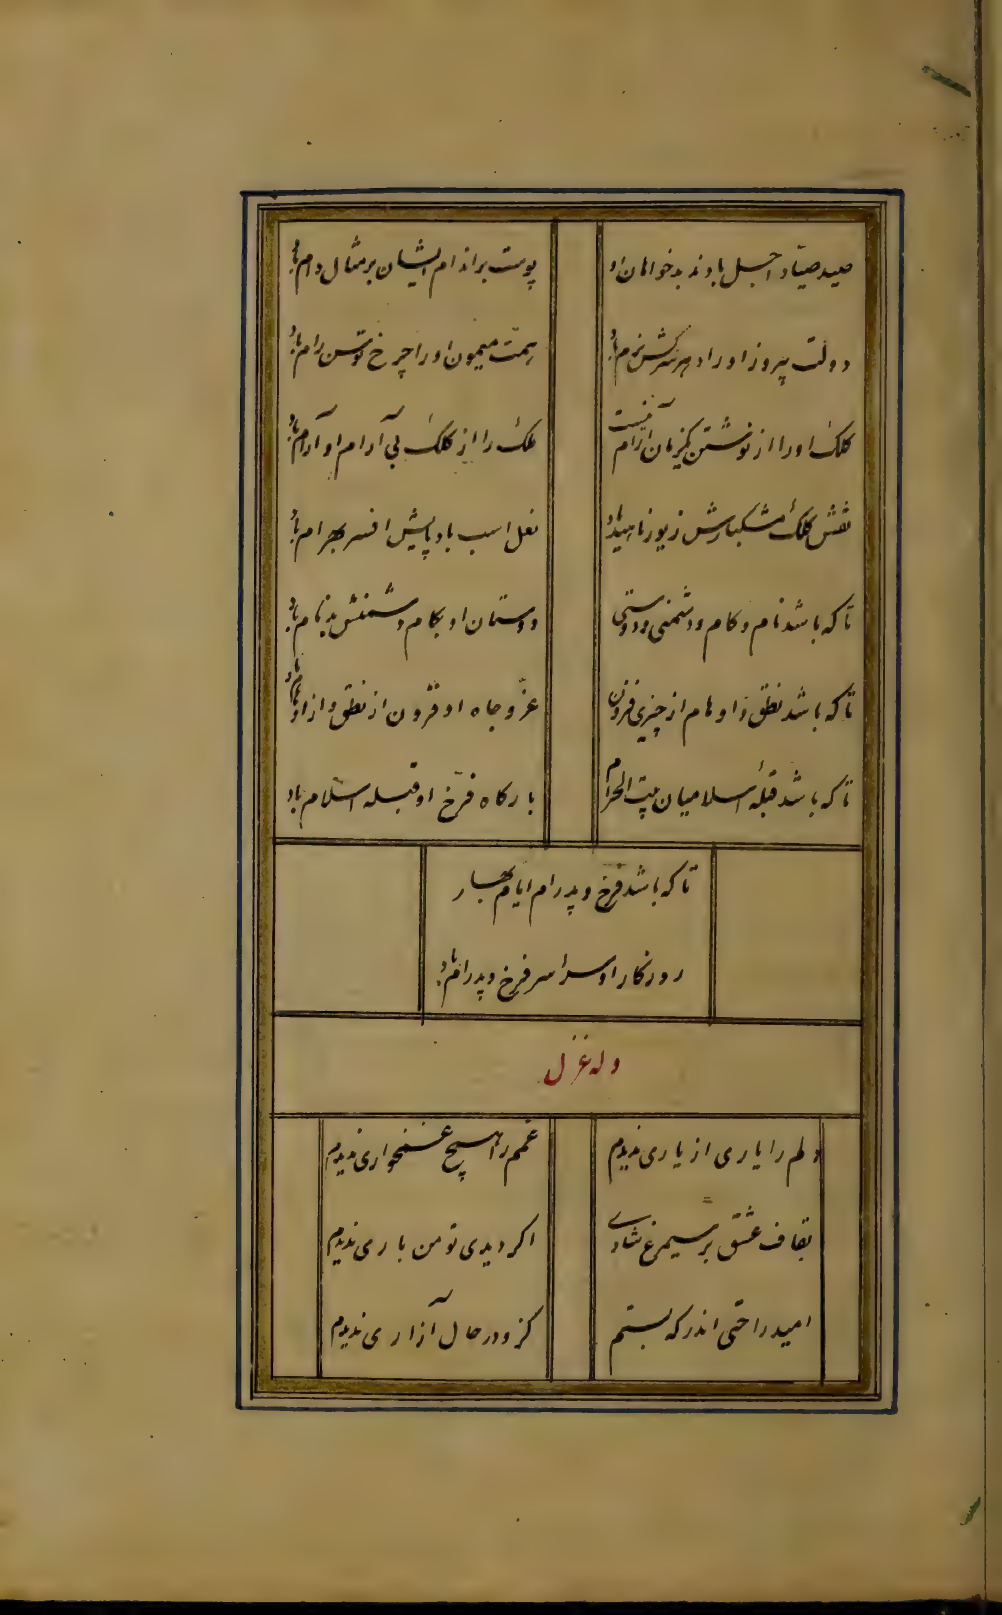 صید صیّاد اجل بادند بدخواهان او
پوست بر اندام ایشان بر مثال دام باد
دولت پیروز او را دهر سرکش نرم باد
همّت میمون او را چرخ توسن رام باد
کلک او را از نوشتن یکزمان آرام نیست
ملک را از کلک بی آرام او آرام باد
نقش کلک مشکبارش زیور ناهید باد
نعل اسب باد پایش افسر بهرام باد
تا که باشد نام و کام و دشمنی و دوستی
دوستان او بکام و دشمنش بدنام باد
تا که باشد نطق و اوهام از چیزی فزون
عزّ و جاه او فزون از نطق و از اوهام باد
تا که باشد قبلهٔ اسلامیان بیت الحرام
بارکاه فرّخ او قبله اسلام باد
تا که باشد فرخ و پدرام ایام بهار
روزکار او سراسر فرخ و پدرام باد
وله غزل
دلم را یاری از یاری ندیدم
غمم را هیچ غمخواری ندیدم
بقاف عشق بر سیمرغ شادی
اکر دیدی تو من باری ندیدم
امید راحتی اندر که بستم
کزو در حال آزاری ندیدم